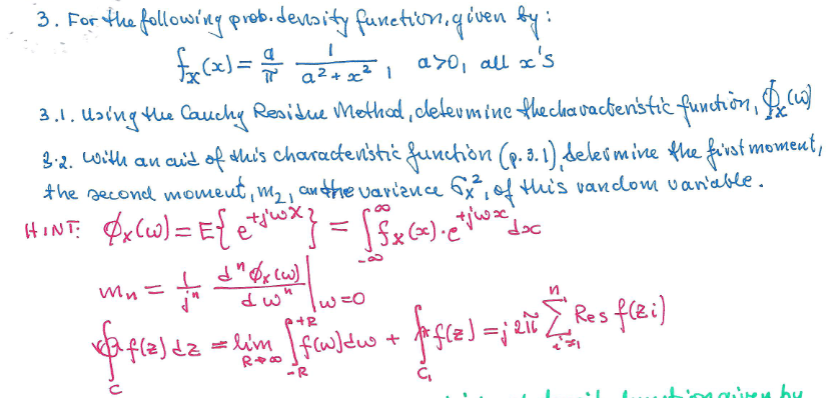 3. For the following prob. density function, given by :
f_X(x) = a/π 1/(a² + x²) , a>0, all x's
3.1. Using the Cauchy Residue Method, determine the characteristic function, ϕ_X(ω)
3.2. With an aid of this characteristic function (p.3.1), determine the first moment,
the second moment, m₂, and the variance σ_X², of this random variable.
HINT: ϕ_X(ω) = E{ e^{+jωX} } = ∫_{-∞}^{∞} f_X(x)·e^{+jωx} dx
m_n = 1/jⁿ dⁿϕ_X(ω)/dωⁿ |_{ω=0}
∮_C f(z) dz = lim_{R→∞} ∫_{-R}^{+R} f(ω)dω + ∮_{C₁} f(z) = j2π ∑_{i=1}^{n} Res f(z_i)
given by